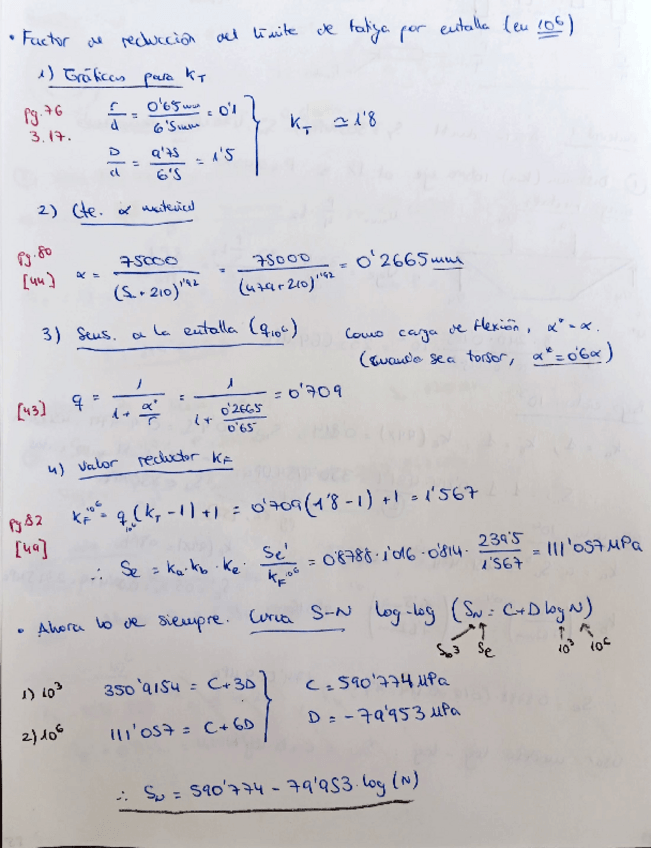 • Factor de reducción del límite de fatiga por entalla (en 10⁶)
1) Gráficas para K_T
Pg. 76
3.17.
r/d = 0'65mm/6'5mm = 0'1
D/d = 9'75/6'5 = 1'5
K_T ≃ 1'8
2) Cte. α material
Pg. 80
[44]
α = 75000/(S + 210)^1'92 = 75000/(479 + 210)^1'92 = 0'2665 mm
3) Sens. a la entalla (q10⁶)
Como carga de flexión, α* = α.
(cuando sea torsor, α* = 0'6α)
[43]
q = 1/(1 + α*/r) = 1/(1 + 0'2665/0'65) = 0'709
4) Valor reductor K_F
Pg. 82
[49]
K_F^10⁶ = q_10⁶ (K_T - 1) + 1 = 0'709(1'8 - 1) + 1 = 1'567
∴ Se = ka · kb · ke · Se'/K_F^10⁶ = 0'8788 · 1'016 · 0'814 · 239'5/1'567 = 111'057 MPa
• Ahora lo de siempre. Curva S-N log-log (S_N = C + D log N)
Se 10³ 10⁶
1) 10³ 350'9154 = C + 3D
2) 10⁶ 111'057 = C + 6D
C = 590'774 MPa
D = -79'953 MPa
∴ S_N = 590'774 - 79'953 · log (N)